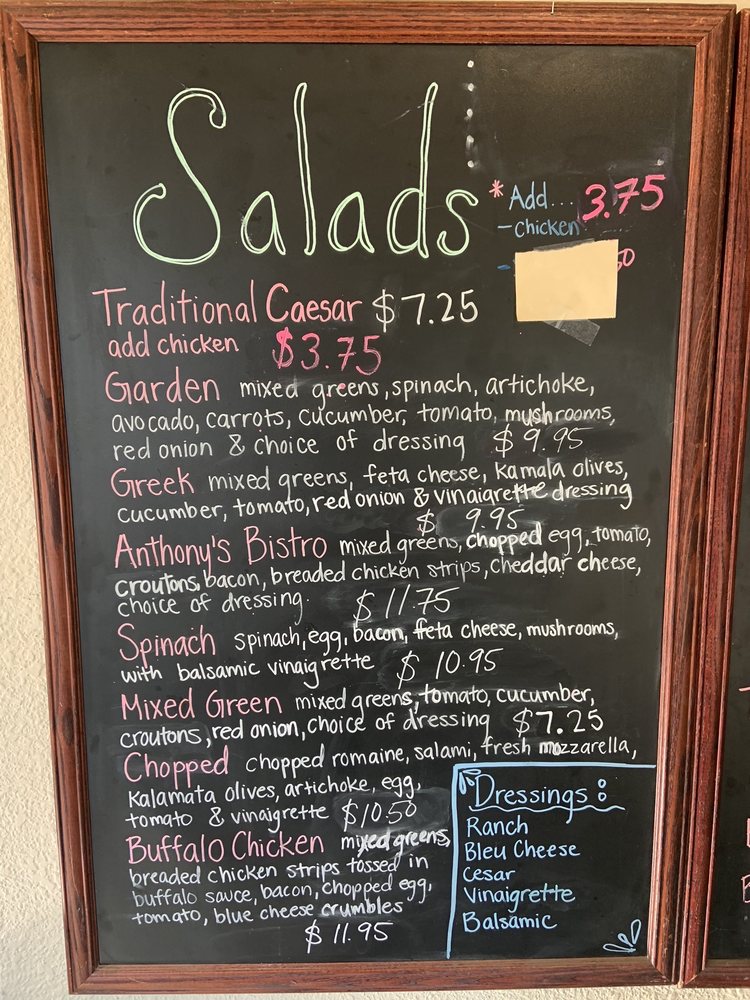 Salads
* Add... 3.75
- Chicken
-
Traditional Caesar $7.25
add chicken $3.75
Garden mixed greens, spinach, artichoke,
avocado, carrots, cucumber, tomato, mushrooms,
red onion & choice of dressing $9.95
Greek mixed greens, feta cheese, Kamala olives,
cucumber, tomato, red onion & vinaigrette dressing
$ 9.95
Anthony's Bistro mixed greens, chopped egg, tomato,
croutons, bacon, breaded chicken strips, cheddar cheese,
choice of dressing. $11.75
Spinach spinach, egg, bacon, feta cheese, mushrooms,
with balsamic vinaigrette $10.95
Mixed Green mixed greens, tomato, cucumber,
croutons, red onion, choice of dressing $7.25
Chopped chopped romaine, salami, fresh mozzarella,
Kalamata olives, artichoke, egg,
tomato & vinaigrette $10.50
Buffalo Chicken mixed greens,
breaded chicken strips tossed in
buffalo sauce, bacon, chopped egg,
tomato, blue cheese crumbles
$11.95
Dressings:
Ranch
Bleu Cheese
Cesar
Vinaigrette
Balsamic